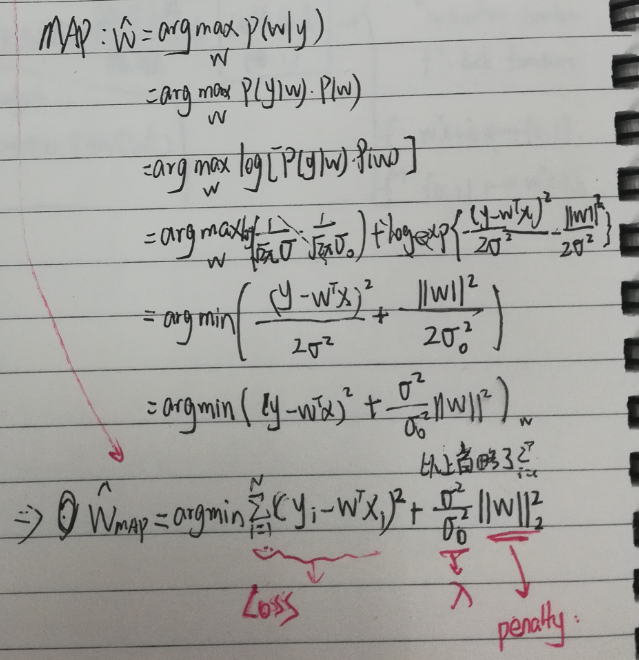 MAP: ŵ = arg max_w p(w|y)
= arg max_w P(y|w)·P(w)
= arg max_w log[P(y|w)·P(w)]
= arg max_w log(1/(√2π σ) · 1/(√2π σ₀)) + log exp{-(y-wᵀx)²/2σ² - ||w||²/2σ²}
= arg min( (y-wᵀx)²/2σ² + ||w||²/2σ₀² )
= arg min ( (y-wᵀx)² + σ²/σ₀² ||w||² )_w
以上省略了 Σ i=1
⇒ ① Ŵ_MAP = arg min Σ_{i=1}^{N} (y_i - wᵀx_i)² + σ²/σ₀² ||w||₂²
Loss λ penalty.